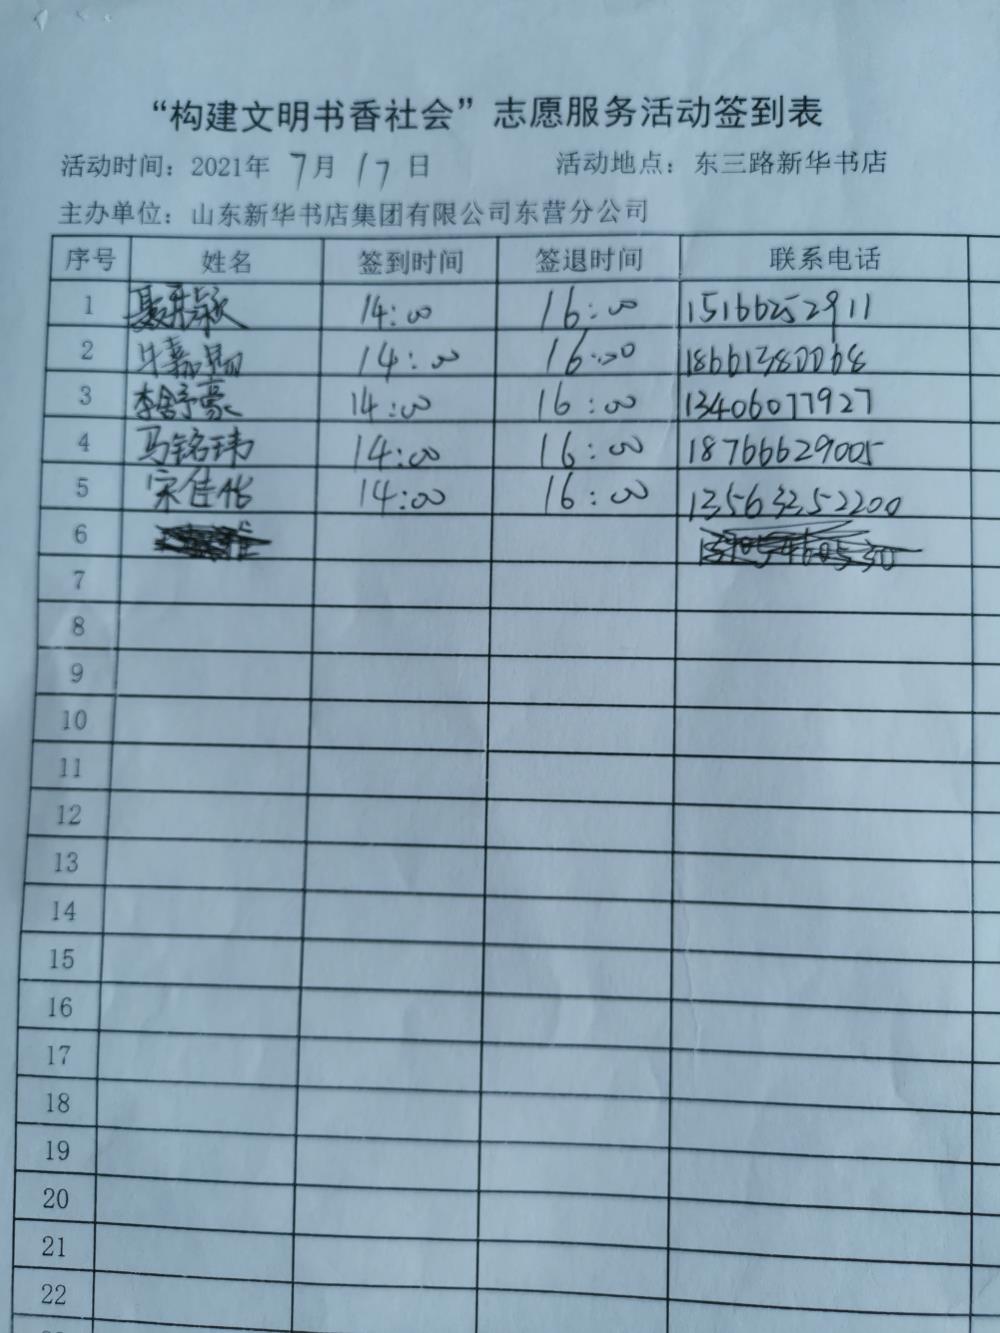 “构建文明书香社会”志愿服务活动签到表
活动时间：2021年 7月 17日 活动地点：东三路新华书店
主办单位：山东新华书店集团有限公司东营分公司
序号 姓名 签到时间 签退时间 联系电话
1 14:00 16:00 15166252911
2 牛嘉 14:00 16:00 18661380068
3 李舒豪 14:00 16:00 13406077927
4 马铭玮 14:00 16:00 18766629005
5 宋佳怡 14:00 16:00 13563352200
6
7
8
9
10
11
12
13
14
15
16
17
18
19
20
21
22